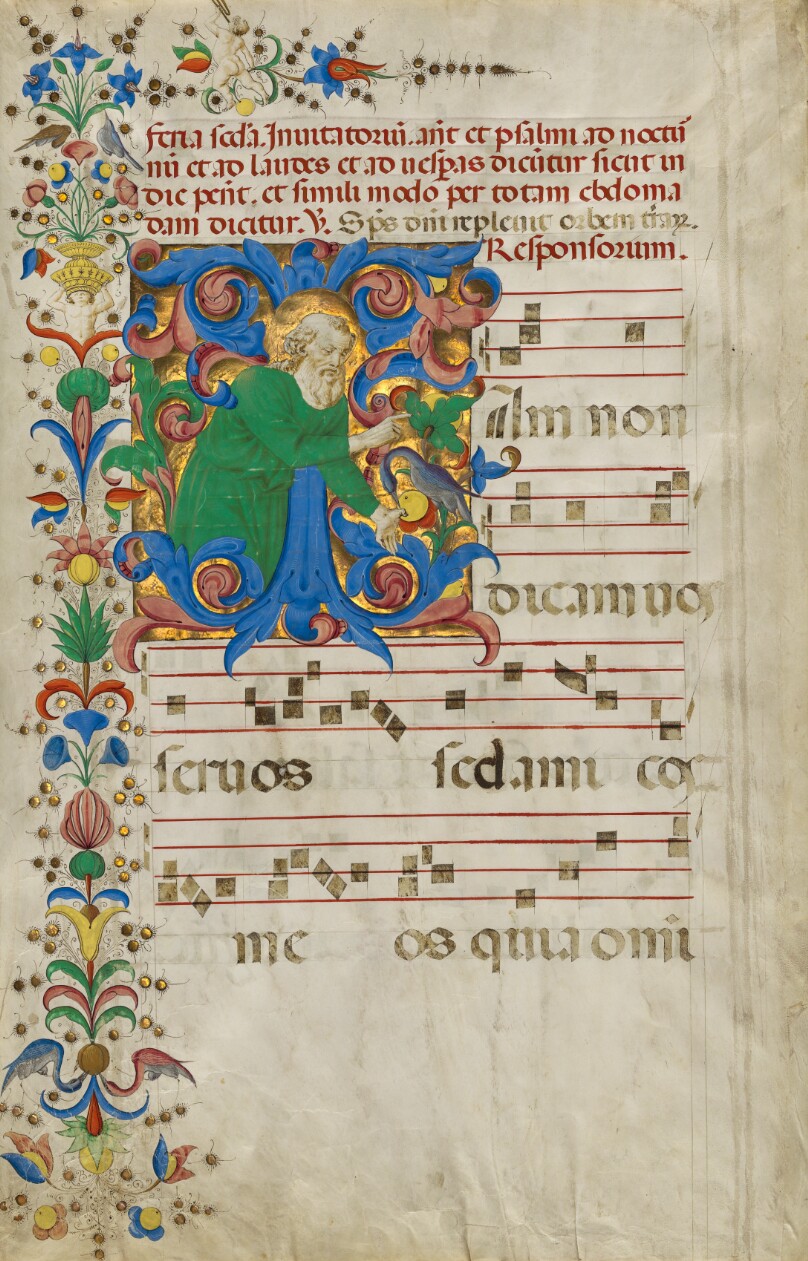 feria scd̄a. Inuitatoriū. an̄t et psalmi ad noctū
ni et ad laudes et ad uesp̄as dicūtur sicut in
die pen̄t. et simili modo per totam ebdoma
dam dicitur. V̄. Sp̄s dn̄i repleuit orbem
Responsorium.
non
dicam uos
seruos sed ami cos
me os quia omi